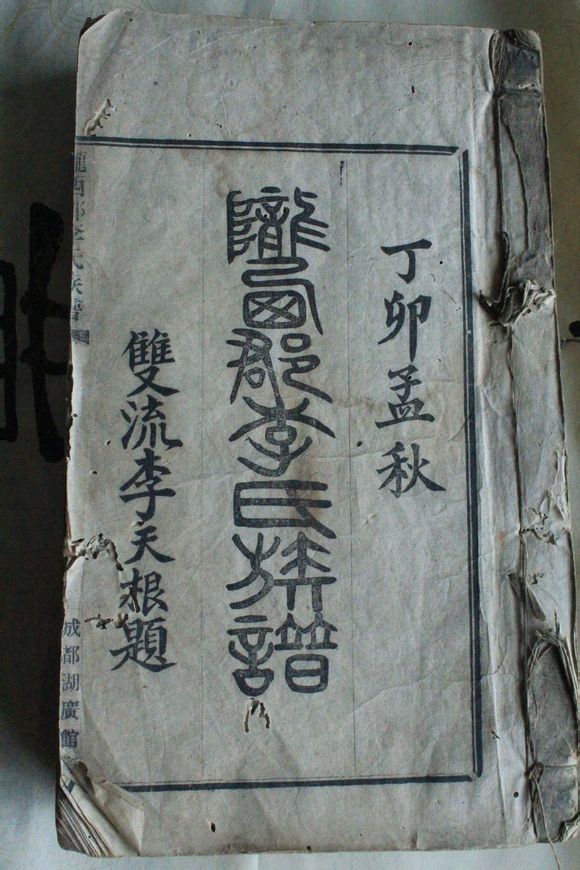 丁卯孟秋
隴西郡李氏族譜
雙流李天根題
隴西郡李氏族譜
成都湖廣館